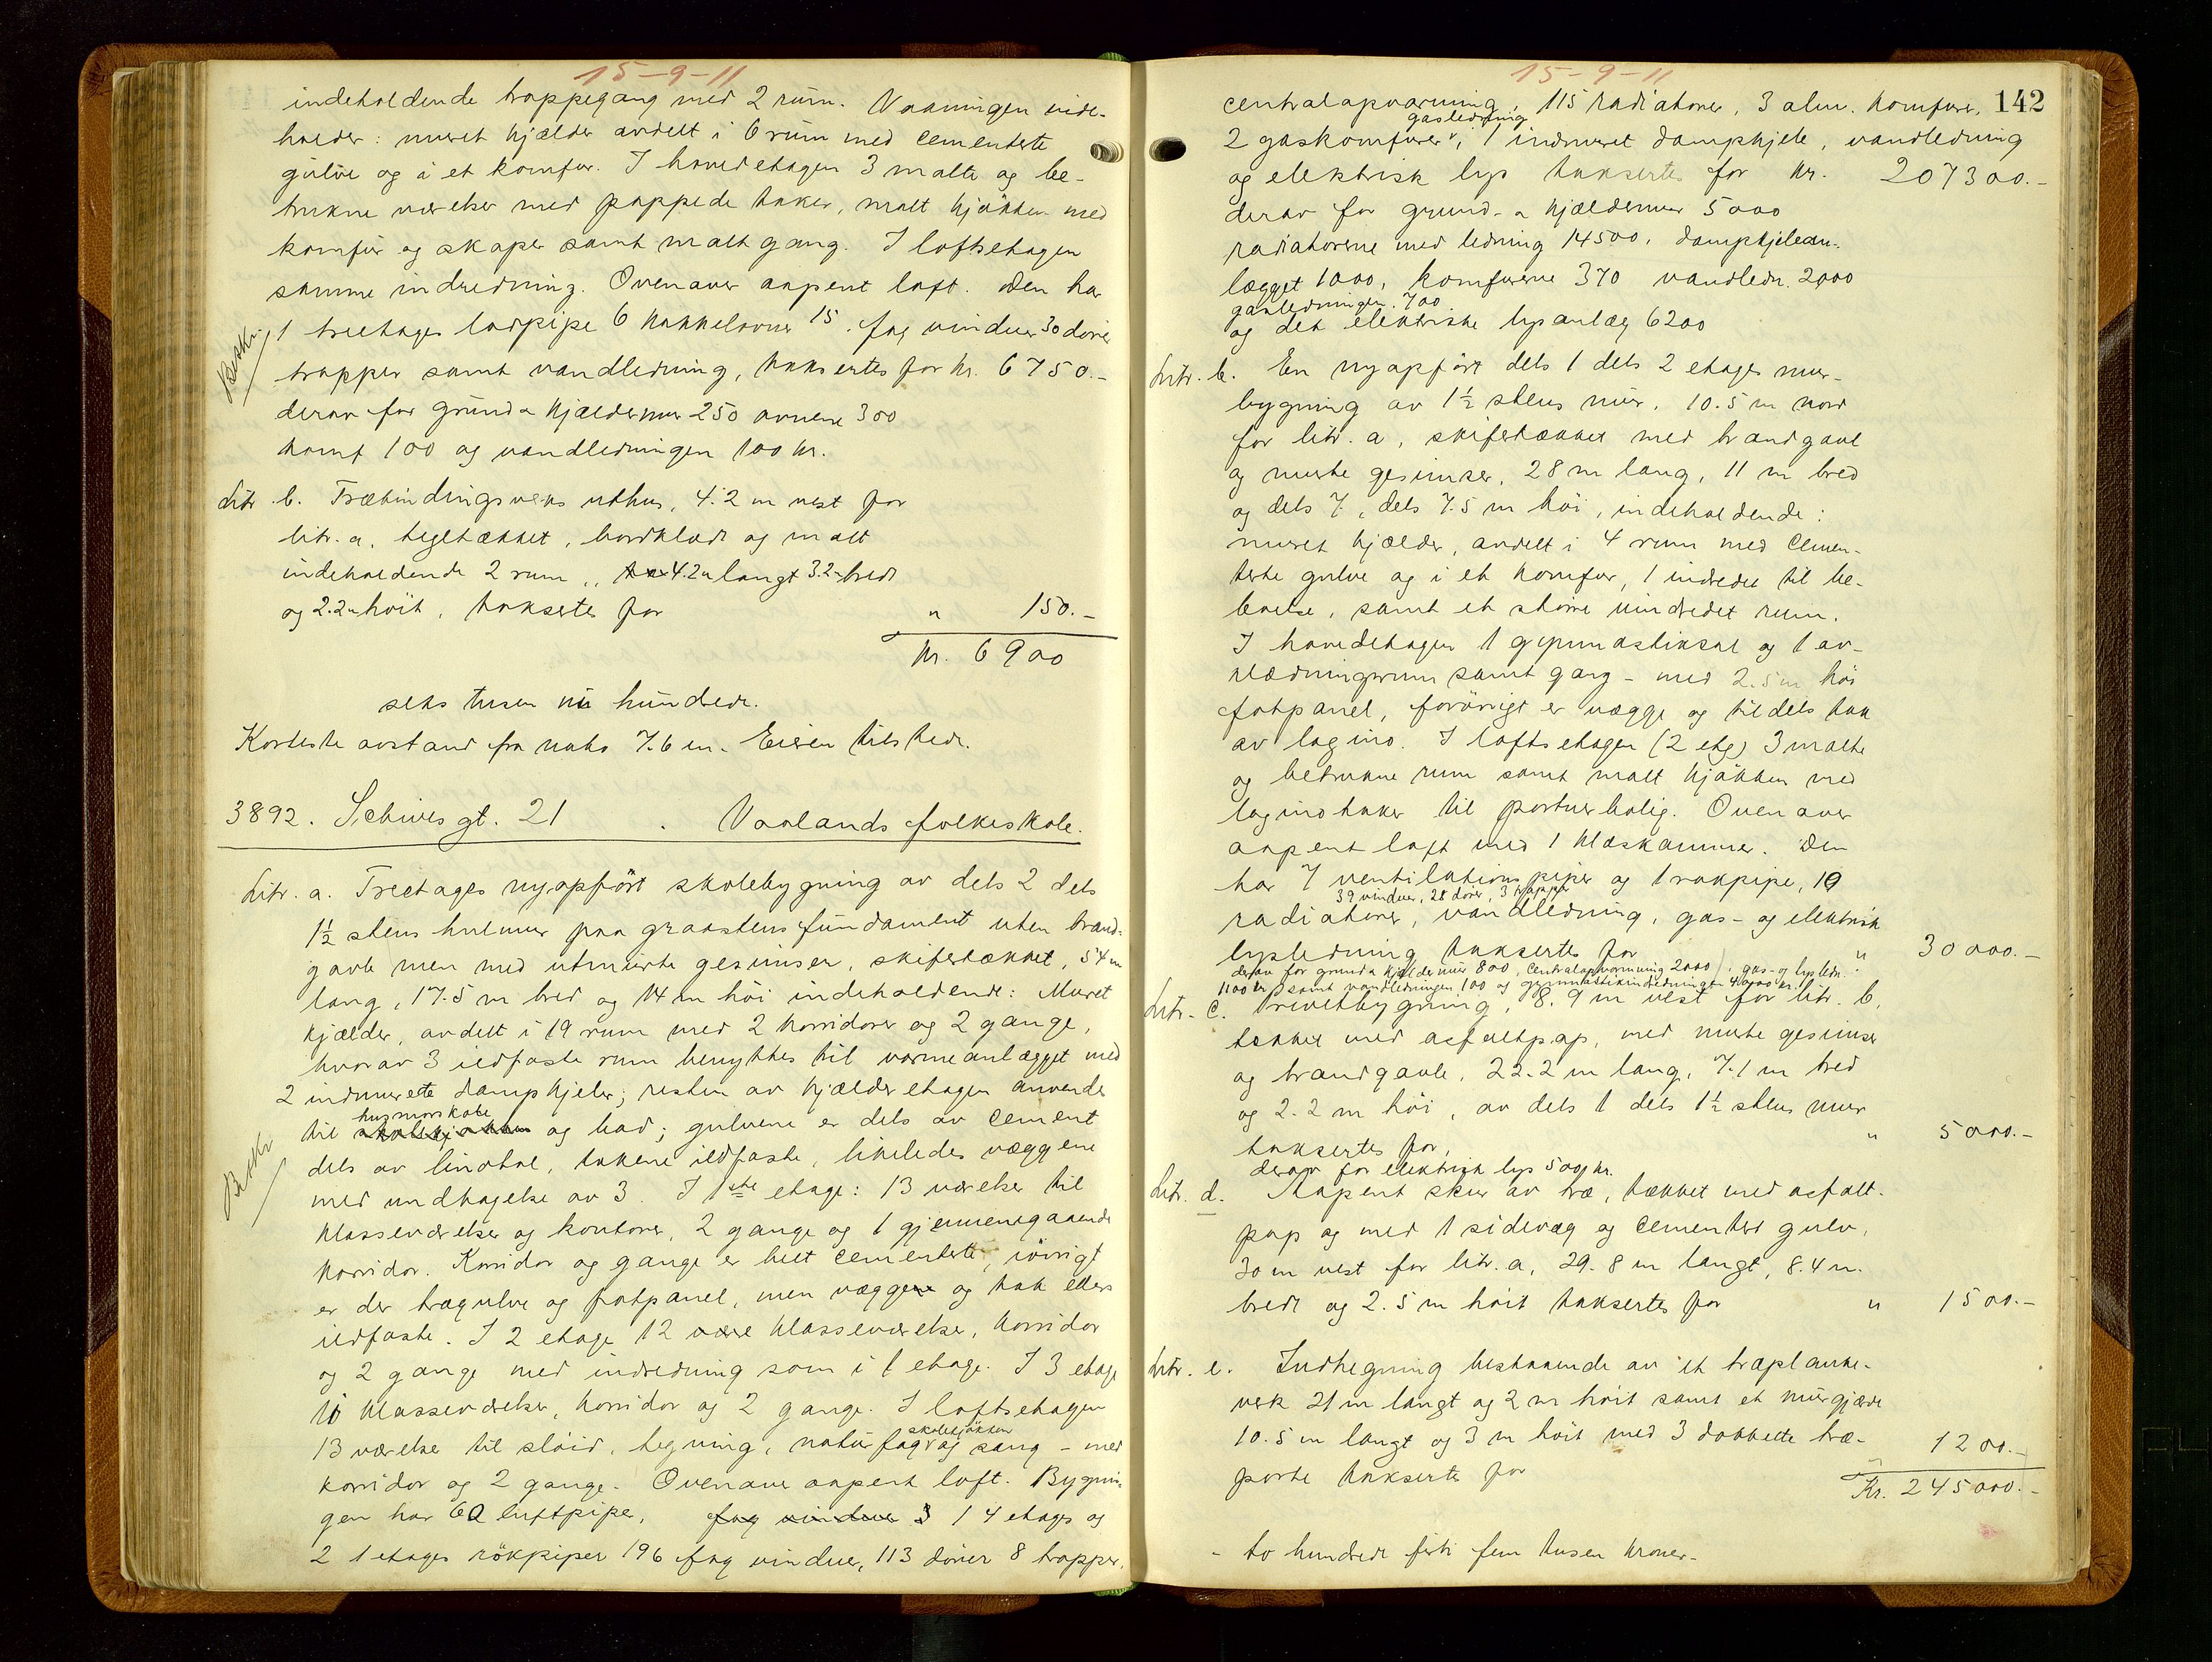 15-9-11
indeholdende trappegang med 2 rum. Vaaningen inde-
holder: muret kjælder avdelt i 6 rum med cementerte
gulve og i et komfur. I hovedetagen 3 malte og be-
trukne værelser med pappede taker, malt kjøkken med
komfur og skaper samt malt gang. I loftsetagen
samme indredning. Ovenover aapent loft. Den har
1 treetages ladpipe 6 kakkelovner 15 fag vinduer 30 dører
trapper samt vandledning, taksertes for kr. 6750.-
derav for grund & kjældermur 250 ovnene 300
komf 100 og vandledningen 100 kr.
Litr b. Træbindingsverks uthus, 4.2 m vest for
litr. a, tegltækket, bordklædt og malt
indeholdende 2 rum, 4.2 m langt 3.2 m bredt
og 2.2 m høit, taksertes for " 150.-
Kr. 6900
seks tusen ni hundrede.
Korteste avstand fra nabo 7.6 m. Eieren tilstede.
3892. Schives gt. 21 . Vaalands folkeskole.
Litr. a. Treetages nyopført skolebygning av dels 2 dels
1½ stens hulmur paa graastensfundament uten brand-
gavle men med utmurte gesimser, skifertækket, 54 m
lang, 17.5 m bred og 14 m høi indeholdende: Muret
kjælder, avdelt i 19 rum med 2 korridorer og 2 gange,
hvorav 3 ildfaste rum benyttes til varmeanlægget med
2 indmurette dampkjeler; resten av kjælderetagen anvendes
husmorskole
til skolekjøkken og bad; gulvene er dels av cement
dels av linotol, takene ildfaste, likeledes væggene
med undtagelse av 3. I 1ste etage: 13 værelser til
klasseværelser og kontorer, 2 gange og 1 gjennemgaaende
korridor. Korridor og gange er helt cementerte, iøvrigt
er der trægulve og fotpanel, men væggene og tak ellers
ildfaste. I 2 etage 12 være klasseværelser, korridor
og 2 gange med indredning som i 1 etage. I 3 etage
10 klasseværelser, korridor og 2 gange. I loftsetagen
skolekjøkken
13 værelser til sløid, tegning, naturfag og sang - med
korridor og 2 gange. Ovenover aapent loft. Bygnin-
gen har 60 luftpiper, fag vinduer 3 1 4 etages og
2 1 etages rökpiper 196 fag vinduer, 113 dører 8 trapper,
15-9-11
142
centralopvarming, 115 radiatorer, 3 alm. komfurer,
gasledning
2 gaskomfurer, 1 indmuret dampkjele, vandledning
og elektrisk lys taksertes for kr. 207300.-
derav for grund- & kjældermur 5000
radiatorerne med ledning 14500, dampkjelean-
lægget 1000, komfurerne 370 vandledn. 2000
gasledningen. 700
og det elektriske lysanlæg 6200
Litr. b. En nyopført dels 1 dels 2 etages mur-
bygning av 1½ stens mur, 10.5 m nord
for litr. a, skifertækket med brandgavl
og murte gesimser, 28 m lang, 11 m bred
og dels 7, dels 7.5 m höi, indeholdende:
muret kjælder, avdelt i 4 rum med cemen-
terte gulve og i et komfur, 1 indredet til be-
boelse, samt et større uindredet rum.
I hovedetagen 1 gymnastiksal og 1 av-
klædningsrum samt gang - med 2.5 m höi
fotpanel, forövrigt er vægge og tildels tak
av lagino. I loftsetagen (2 etg) 3 malte
og betrukne rum samt malt kjökken med
laginotaker til portnerbolig. Ovenover
aapent loft med 1 klæskammer. Den
har 7 ventilationspiper og 1 rökpipe, 19
39 vinduer, 28 dører, 3 trapper
radiatorer, vandledning, gas- og elektrisk
lysledning taksertes for " 30000.-
derav for grund & kjældermur 800, centralopvarmning 2000, gas- og lysledn.
1100 kr, samt vandledningen 100 og gymnastikindredningen 4000 kr.
Litr. c. Privetbygning, 8.9 m vest for litr. b,
tækket med asfaltpap, med murte gesimser
og brandgavle, 22.2 m lang, 7.1 m bred
og 2.2 m höi, av dels 1 dels 1½ stens mur
taksertes for, " 5000.-
derav for elektrisk lys 500 kr.
Litr. d. Aapent skur av træ, tækket med asfalt-
pap og med 1 sidevæg og cementert gulv,
30 m vest for litr. a, 29.8 m langt, 8.4 m.
bredt og 2.5 m höit taksertes for " 1500.-
Litr. e. Indhegning bestaaende av et træplanke-
verk 21 m langt og 2 m höit samt et murgjærde
10.5 m langt og 3 m höit med 3 dobbelte træ-
porte taksertes for " 1200.-
Kr. 245000.-
- to hundrede førti fem tusen kroner-